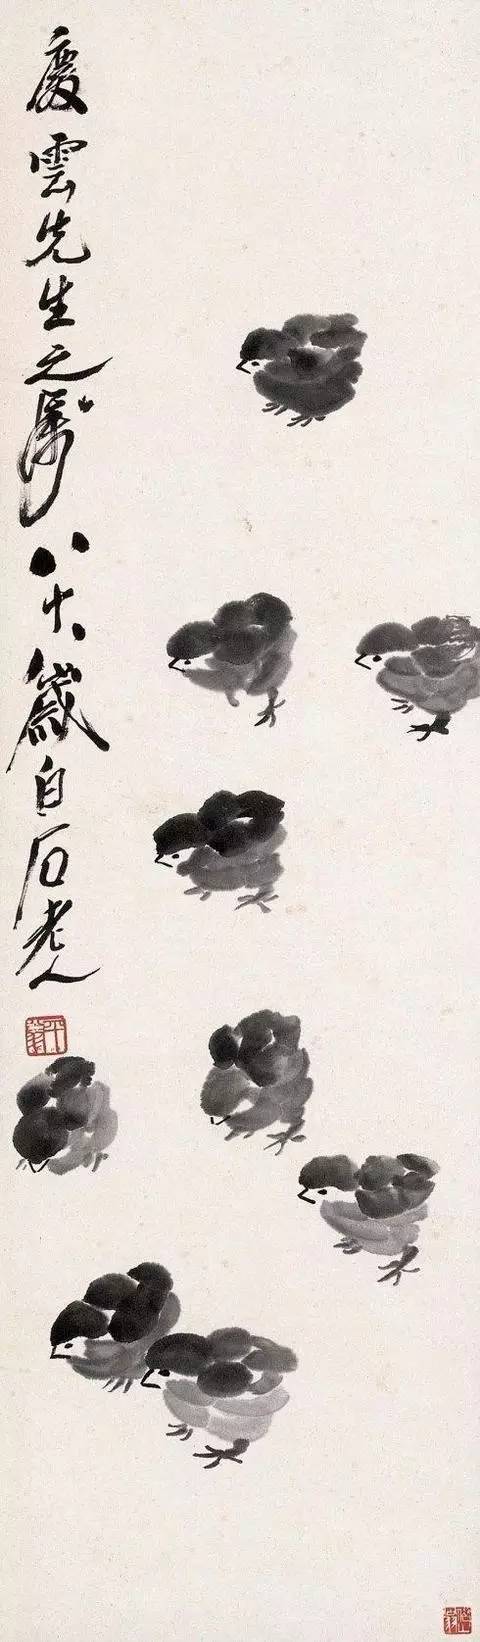 慶雲先生之屬八十八歲白石老人
平翁